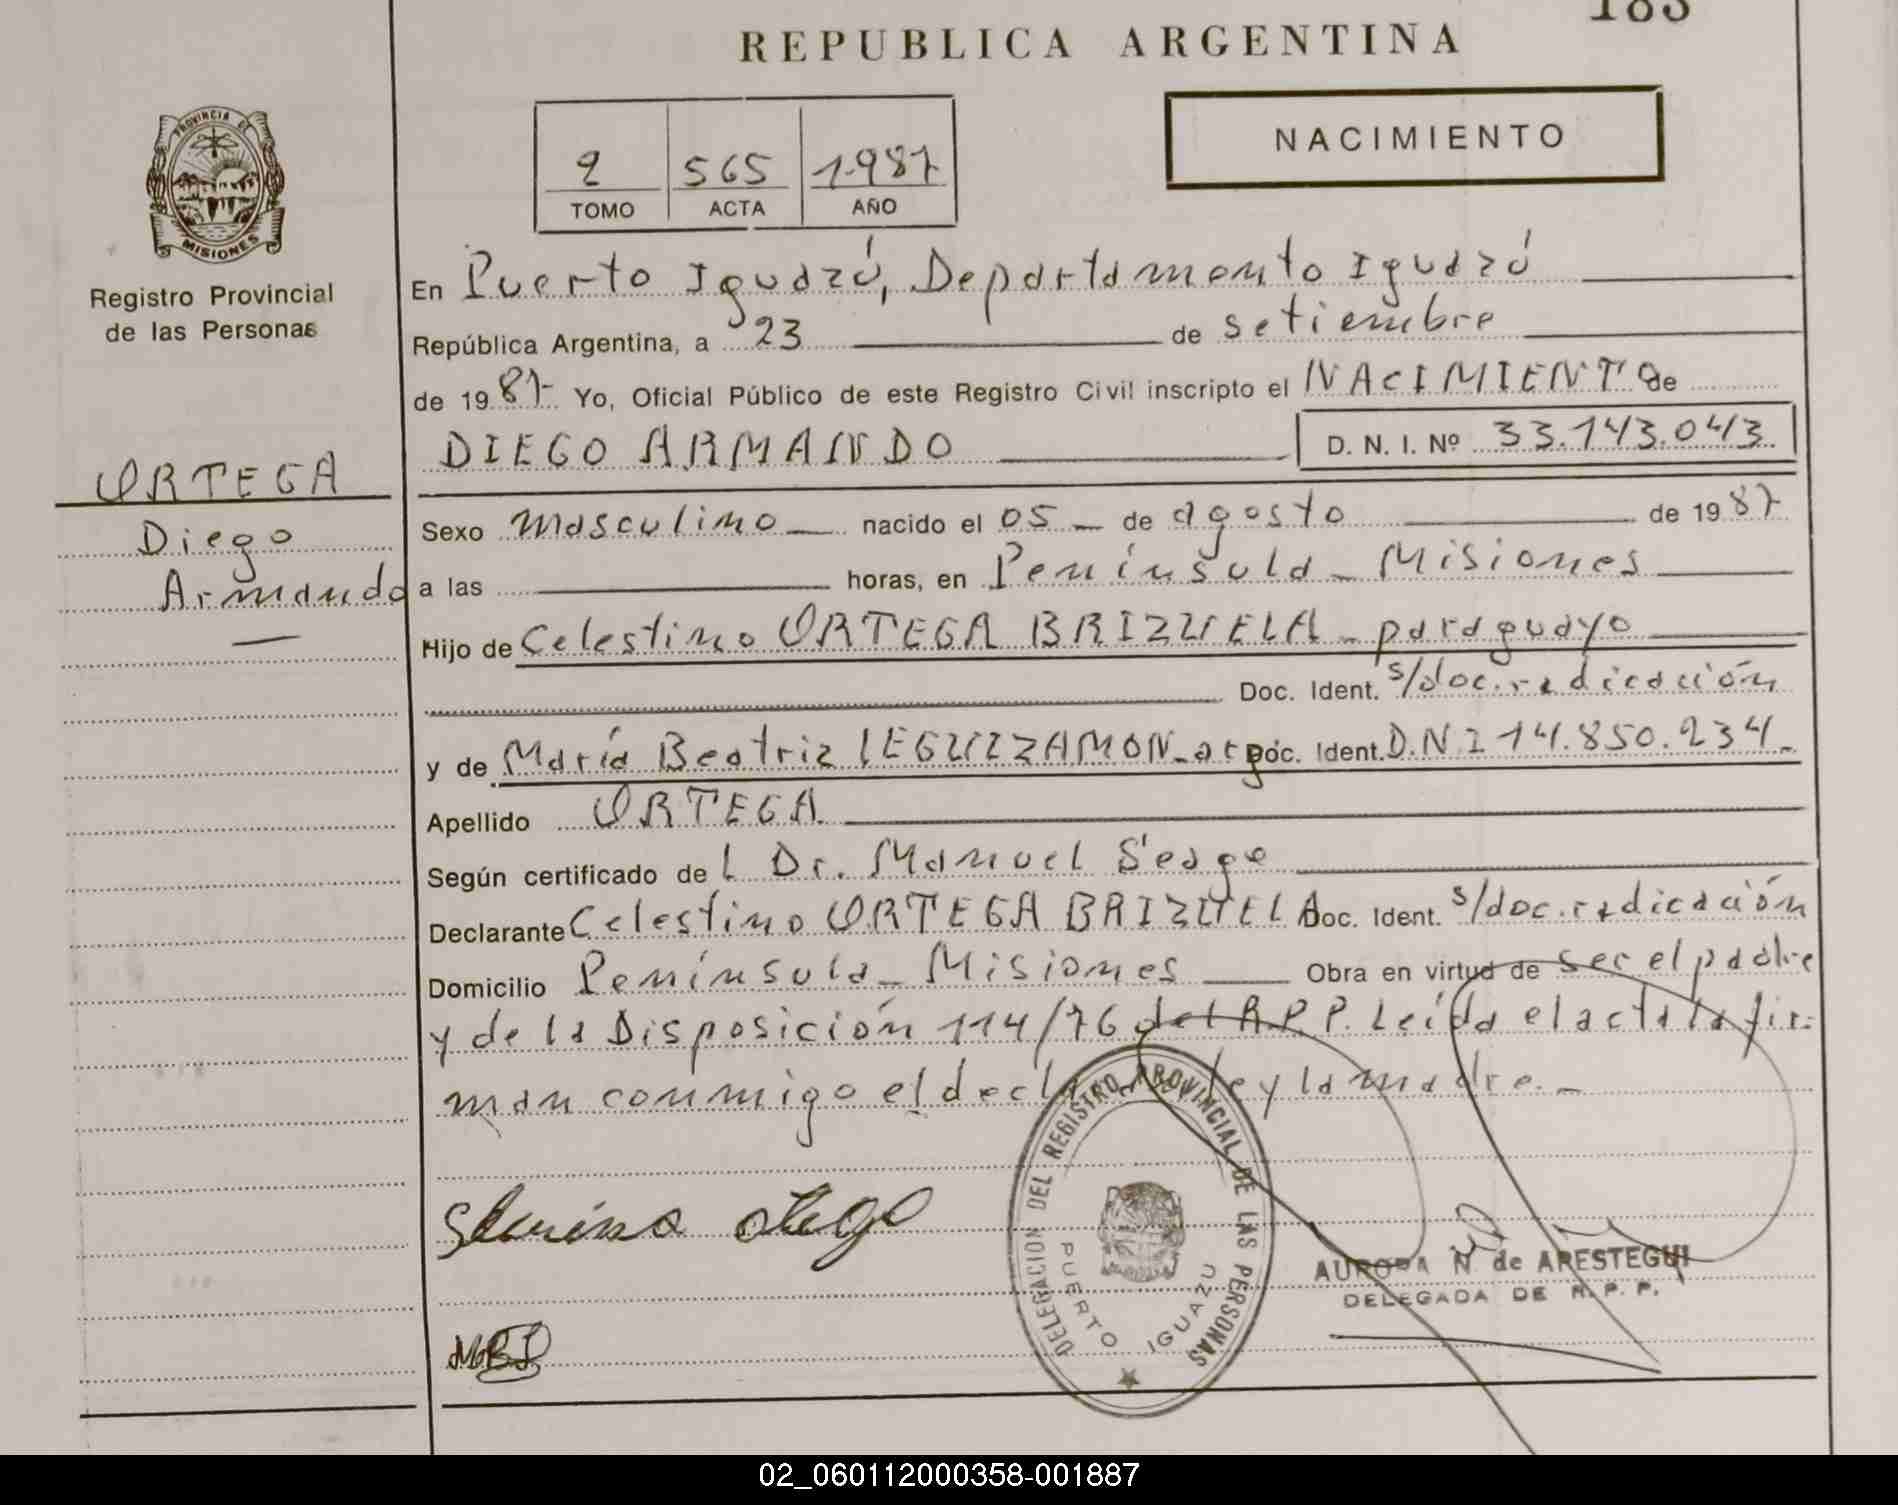 183
REPUBLICA ARGENTINA
NACIMIENTO
2 565 1987
TOMO ACTA AÑO
PROVINCIA DE MISIONES
Registro Provincial
de las Personas
En Puerto Iguazú, Departamento Iguazú
República Argentina, a 23 de setiembre
de 1987 Yo, Oficial Público de este Registro Civil inscripto el NACIMIENTO de
DIEGO ARMANDO D. N. I. Nº 33.143.043
ORTEGA
Diego
Armando
Sexo masculino nacido el 05 de agosto de 1987
a las horas, en Península - Misiones
Hijo de Celestino ORTEGA BRIZUELA - paraguayo
Doc. Ident. s/doc. radicación
y de María Beatriz LEGUIZAMON - arg Doc. Ident. D.N.I 14.850.234
Apellido ORTEGA
Según certificado del Dr. Manuel Seage
Declarante Celestino ORTEGA BRIZUELA Doc. Ident. s/doc. radicación
Domicilio Península - Misiones Obra en virtud de ser el padre
y de la Disposición 114/76 del R.P.P. Leída el acta la fir=
man conmigo el declarante y la madre. -
DELEGACION DEL REGISTRO PROVINCIAL DE LAS PERSONAS
PUERTO IGUAZU
AURORA N de ARESTEGUI
DELEGADA DE R. P. P.
MBL
02_060112000358-001887